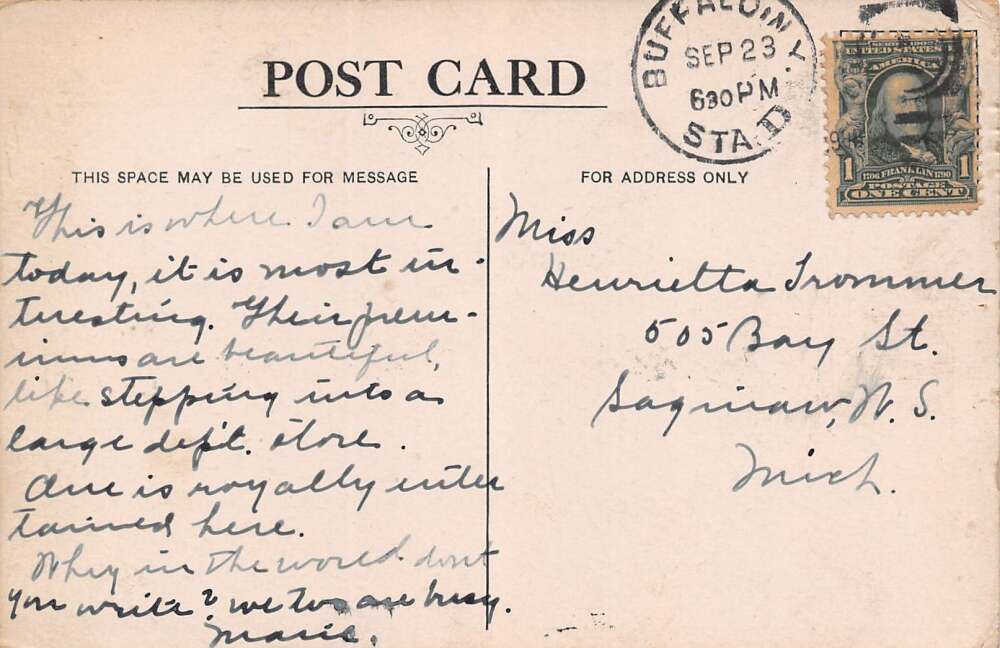 POST CARD
THIS SPACE MAY BE USED FOR MESSAGE
This is where I am
today, it is most in-
teresting. Their prem-
iums are beautiful,
like stepping into a
large dep't. store.
One is royally enter
tained here.
Why in the world dont
you write? we two are busy.
Marie.
FOR ADDRESS ONLY
Miss
Henrietta Trommer
505 Bay St.
Saginaw, W. S.
Mich.
BUFFALO, N.Y.
SEP 23
630 PM
STA. D
SERIES 1902
UNITED STATES
AMERICA
1706 FRANKLIN 1790
1 1
POSTAGE
ONE CENT